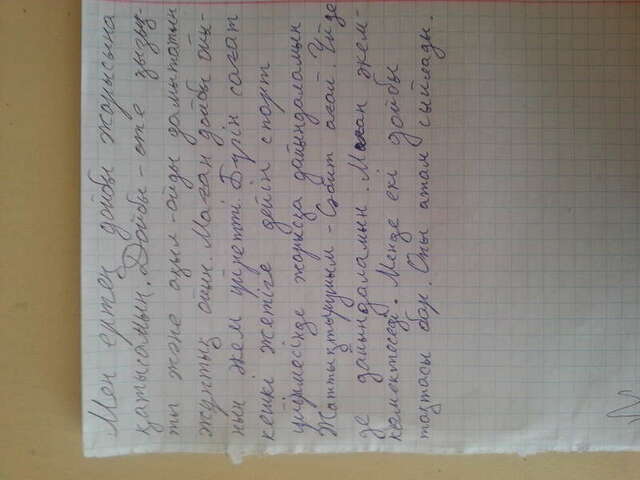 Мен ертең дойбы жарысына
қатысамын. Дойбы - өте қызық-
ты және ақыл-ойды дамытатын
жұптық ойын. Маған дойбы ойы-
нын әкем үйретті. Бүгін сағат
кешкі жетіге дейін спорт
үйірмесінде жарысқа дайындаламын.
Жаттықтырушым - Сәбит ағай. Үйде
де дайындаламын. Маған әкем
көмектеседі. Менде екі дойбы
тақтасы бар. Оны атам сыйлады.